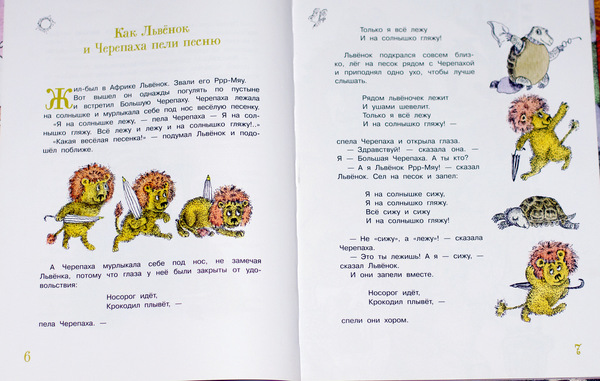 Как Львёнок
и Черепаха пели песню
Жил-был в Африке Львёнок. Звали его Ррр-Мяу.
Вот вышел он однажды погулять по пустыне
и встретил Большую Черепаху. Черепаха лежала
на солнышке и мурлыкала себе под нос весёлую песенку.
«Я на солнышке лежу, — пела Черепаха — Я на сол-
нышко гляжу! Всё лежу и лежу и на солнышко гляжу!..»
«Какая весёлая песенка!» — подумал Львёнок и подо-
шёл поближе.
А Черепаха мурлыкала себе под нос, не замечая
Львёнка, потому что глаза у неё были закрыты от удо-
вольствия:
Носорог идёт,
Крокодил плывёт, —
пела Черепаха. —
6
Только я всё лежу
И на солнышко гляжу!
Львёнок подкрался совсем близ-
ко, лёг на песок рядом с Черепахой
и приподнял одно ухо, чтобы лучше
слышать.
Рядом львёночек лежит
И ушами шевелит.
Только я всё лежу
И на солнышко гляжу! —
спела Черепаха и открыла глаза.
— Здравствуй! — сказала она. —
Я — Большая Черепаха. А ты кто?
— А я Львёнок Ррр-Мяу! — сказал
Львёнок. Сел на песок и запел:
Я на солнышке сижу,
Я на солнышко гляжу.
Всё сижу и сижу
И на солнышко гляжу!
— Не «сижу», а «лежу»! — сказала
Черепаха.
— Это ты лежишь! А я — сижу, —
сказал Львёнок.
И они запели вместе.
Носорог идёт,
Крокодил плывёт, —
спели они хором.
7